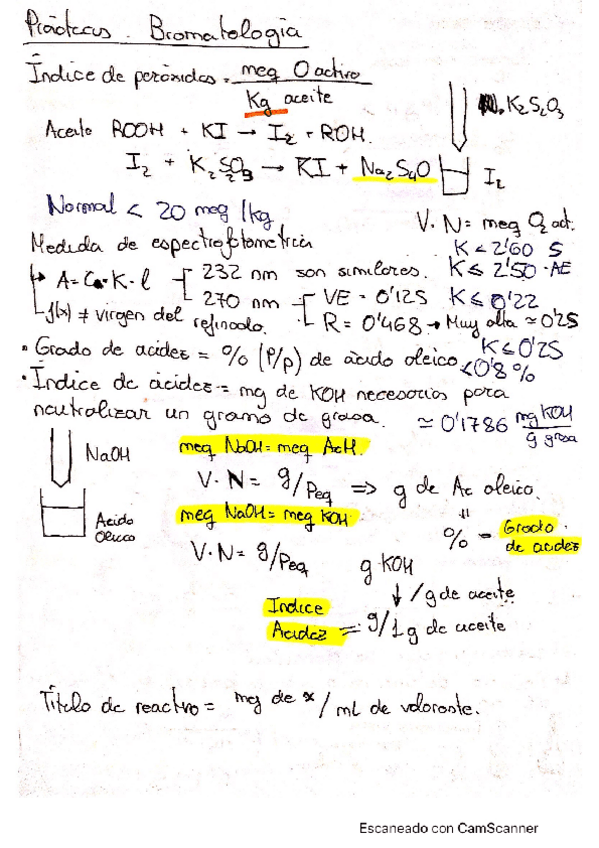 Prácticas. Bromatología
Índice de peróxidos = meq O activo / Kg aceite
K2S2O3
Aceite ROOH + KI → I2 + ROH.
I2 + K2S2O3 → KI + Na2S4O
I2
Normal < 20 meq/kg
V·N = meq O2 act.
Medida de espectrofotometría
K < 2'60 S
A = C·K·l
232 nm son similares. K ≤ 2'50 · AE
270 nm
VE = 0'125 K ≤ 0'22
f(x) ≠ virgen del refinado.
R = 0'468 → Muy alta ≃ 0'25
K ≤ 0'25
· Grado de acidez = % (P/p) de ácido oleico <0'8 %
· Índice de ácidez = mg de KOH necesarios para
neutralizar un gramo de grasa. ≃ 0'1786 mg KOH / g grasa
NaOH
meq NaOH = meq AcH.
V·N = g/Peq => g de Ac oleico.
Acido
Oleico
meq NaOH = meq KOH
% = Grado de acidez
V·N = g/Peq
g KOH
↓ /g de aceite
Indice
Acidez = g/1g de aceite
Título de reactivo = mg de x / ml de valorante.
Escaneado con CamScanner